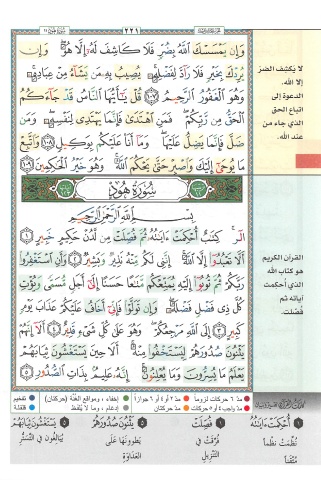 ٢٢١
وَإِن يَمْسَسْكَ ٱللَّهُ بِضُرٍّ فَلَا كَاشِفَ لَهُۥٓ إِلَّا هُوَۖ وَإِن
يُرِدْكَ بِخَيْرٍ فَلَا رَآدَّ لِفَضْلِهِۦۚ يُصِيبُ بِهِۦ مَن يَشَآءُ مِنْ عِبَادِهِۦۚ
وَهُوَ ٱلْغَفُورُ ٱلرَّحِيمُ ۝١٠٧ قُلْ يَٰٓأَيُّهَا ٱلنَّاسُ قَدْ جَآءَكُمُ
ٱلْحَقُّ مِن رَّبِّكُمْۖ فَمَنِ ٱهْتَدَىٰ فَإِنَّمَا يَهْتَدِى لِنَفْسِهِۦۖ وَمَن
ضَلَّ فَإِنَّمَا يَضِلُّ عَلَيْهَاۖ وَمَآ أَنَا۠ عَلَيْكُم بِوَكِيلٍ ۝١٠٨ وَٱتَّبِعْ
مَا يُوحَىٰٓ إِلَيْكَ وَٱصْبِرْ حَتَّىٰ يَحْكُمَ ٱللَّهُۚ وَهُوَ خَيْرُ ٱلْحَٰكِمِينَ ۝١٠٩
سُورَةُ هُودٍ
بِسْمِ ٱللَّهِ ٱلرَّحْمَٰنِ ٱلرَّحِيمِ
الٓرۚ كِتَٰبٌ أُحْكِمَتْ ءَايَٰتُهُۥ ثُمَّ فُصِّلَتْ مِن لَّدُنْ حَكِيمٍ خَبِيرٍ ۝١
أَلَّا تَعْبُدُوٓا۟ إِلَّا ٱللَّهَۚ إِنَّنِى لَكُم مِّنْهُ نَذِيرٌ وَبَشِيرٌ ۝٢ وَأَنِ ٱسْتَغْفِرُوا۟
رَبَّكُمْ ثُمَّ تُوبُوٓا۟ إِلَيْهِ يُمَتِّعْكُم مَّتَٰعًا حَسَنًا إِلَىٰٓ أَجَلٍ مُّسَمًّى وَيُؤْتِ
كُلَّ ذِى فَضْلٍ فَضْلَهُۥۖ وَإِن تَوَلَّوْا۟ فَإِنِّىٓ أَخَافُ عَلَيْكُمْ عَذَابَ يَوْمٍ
كَبِيرٍ ۝٣ إِلَى ٱللَّهِ مَرْجِعُكُمْۖ وَهُوَ عَلَىٰ كُلِّ شَىْءٍ قَدِيرٌ ۝٤ أَلَآ إِنَّهُمْ
يَثْنُونَ صُدُورَهُمْ لِيَسْتَخْفُوا۟ مِنْهُۚ أَلَا حِينَ يَسْتَغْشُونَ ثِيَابَهُمْ
يَعْلَمُ مَا يُسِرُّونَ وَمَا يُعْلِنُونَۚ إِنَّهُۥ عَلِيمٌۢ بِذَاتِ ٱلصُّدُورِ ۝٥
لا يكشف الضر
إلا الله.
الدعوة إلى
اتباع الحق
الذي جاء من
عند الله.
القرآن الكريم
هو كتاب الله
الذي أحكمت
آياته ثم
فصّلت.
مد ٦ حركات لزوماً مد ٢ أو ٤ أو ٦ جوازاً إخفاء، ومواقع الغنّة (حركتان) تفخيم
مد واجب ٤ أو ٥ حركات مد حركتان إدغام، وما لا يُلفظ قلقلة
١ أُحْكِمَتْ ءَايَٰتُهُۥ
نُظِّمَتْ نَظْماً
مُتْقَناً
١ فُصِّلَتْ
فُرِّقَتْ فِي
التَّنْزِيلِ
٥ يَثْنُونَ صُدُورَهُمْ
يَطْوُونَهَا عَلَى
العَدَاوَةِ
٥ يَسْتَغْشُونَ ثِيَابَهُمْ
يُبَالِغُونَ فِي التَّسَتُّرِ